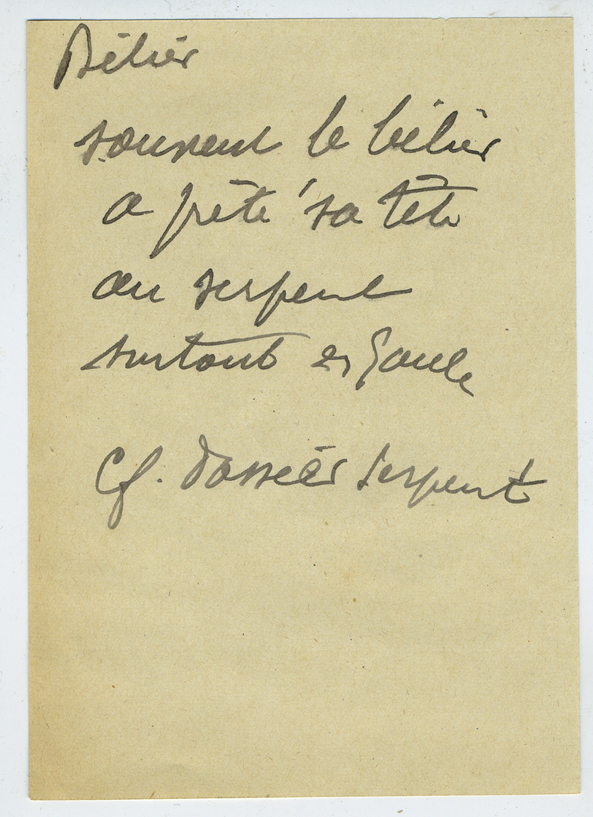 Bélier
souvent le bélier
a prêté sa tête
au serpent
surtout en Gaule
Cf. dossier serpent